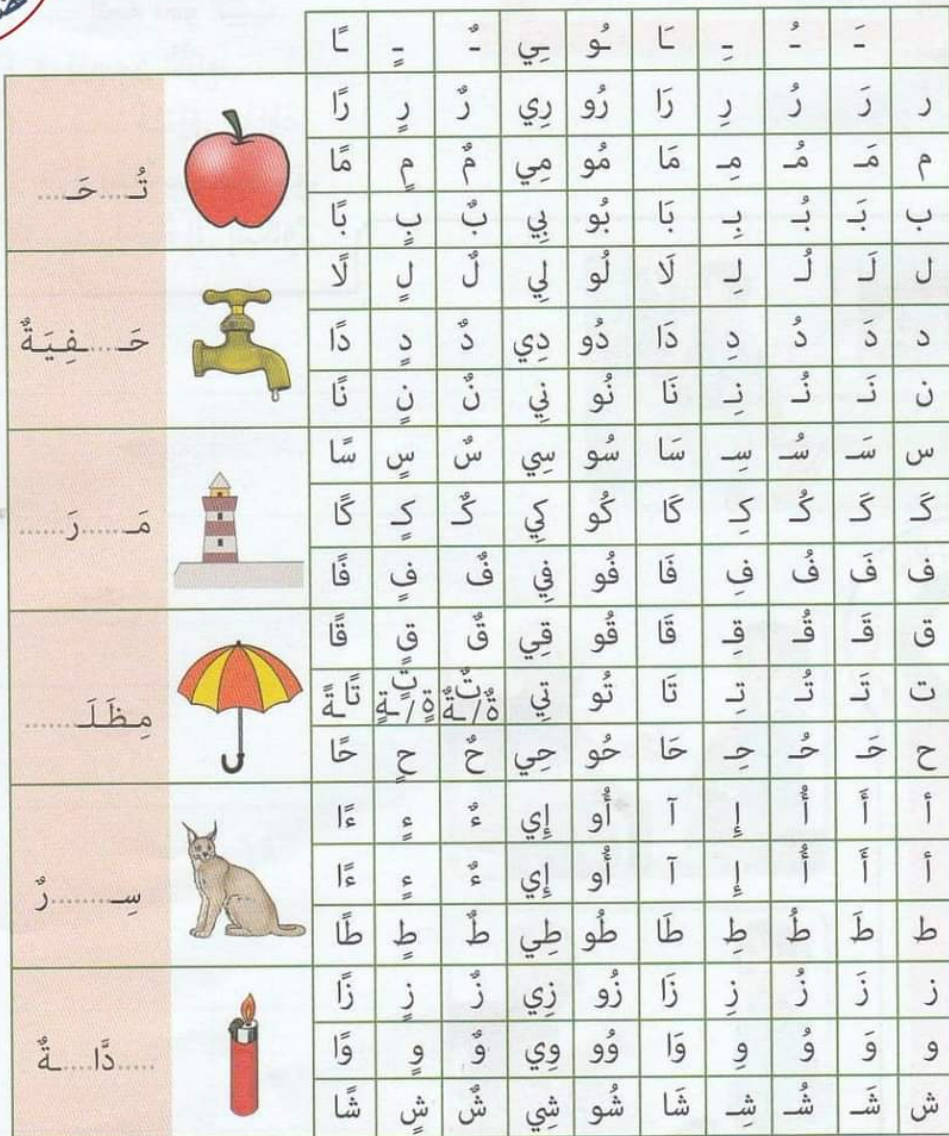 ـَ ـُ ـِ ـَا ـُو ـِي ـٌ ـٍ ـًا
ر رَ رُ رِ رَا رُو رِي رٌ رٍ رًا
م مَـ مُـ مِـ مَا مُو مِي مٌ مٍ مًا
ب بَـ بُـ بِـ بَا بُو بِي بٌ بٍ بًا
تُـ....ـحَـ....
ل لَـ لُـ لِـ لَا لُو لِي لٌ لٍ لًا
د دَ دُ دِ دَا دُو دِي دٌ دٍ دًا
ن نَـ نُـ نِـ نَا نُو نِي نٌ نٍ نًا
حَـ....ـفِيَةٌ
س سَـ سُـ سِـ سَا سُو سِي سٌ سٍ سًا
كَـ كَـ كُـ كِـ كَا كُو كِي كٌـ كٍـ كًا
ف فَـ فُـ فِـ فَا فُو فِي فٌ فٍ فًا
مَـ......رَ......
ق قَـ قُـ قِـ قَا قُو قِي قٌ قٍ قًا
ت تَـ تُـ تِـ تَا تُو تِي تٌ ةٌ/ـةٌ تٍ ةٍ/ـةٍ تًا ـةً
ح حَـ حُـ حِـ حَا حُو حِي حٌ حٍ حًا
مِظَلَـ......
أ أَ أُ إِ آ أُو إِي ءٌ ءٍ ءًا
أ أَ أُ إِ آ أُو إِي ءٌ ءٍ ءًا
ط طَ طُ طِ طَا طُو طِي طٌ طٍ طًا
سِـ........رٌ
ز زَ زُ زِ زَا زُو زِي زٌ زٍ زًا
و وَ وُ وِ وَا وُو وِي وٌ وٍ وًا
ش شَـ شُـ شِـ شَا شُو شِي شٌ شٍ شًا
.....دَّا....ـةٌ